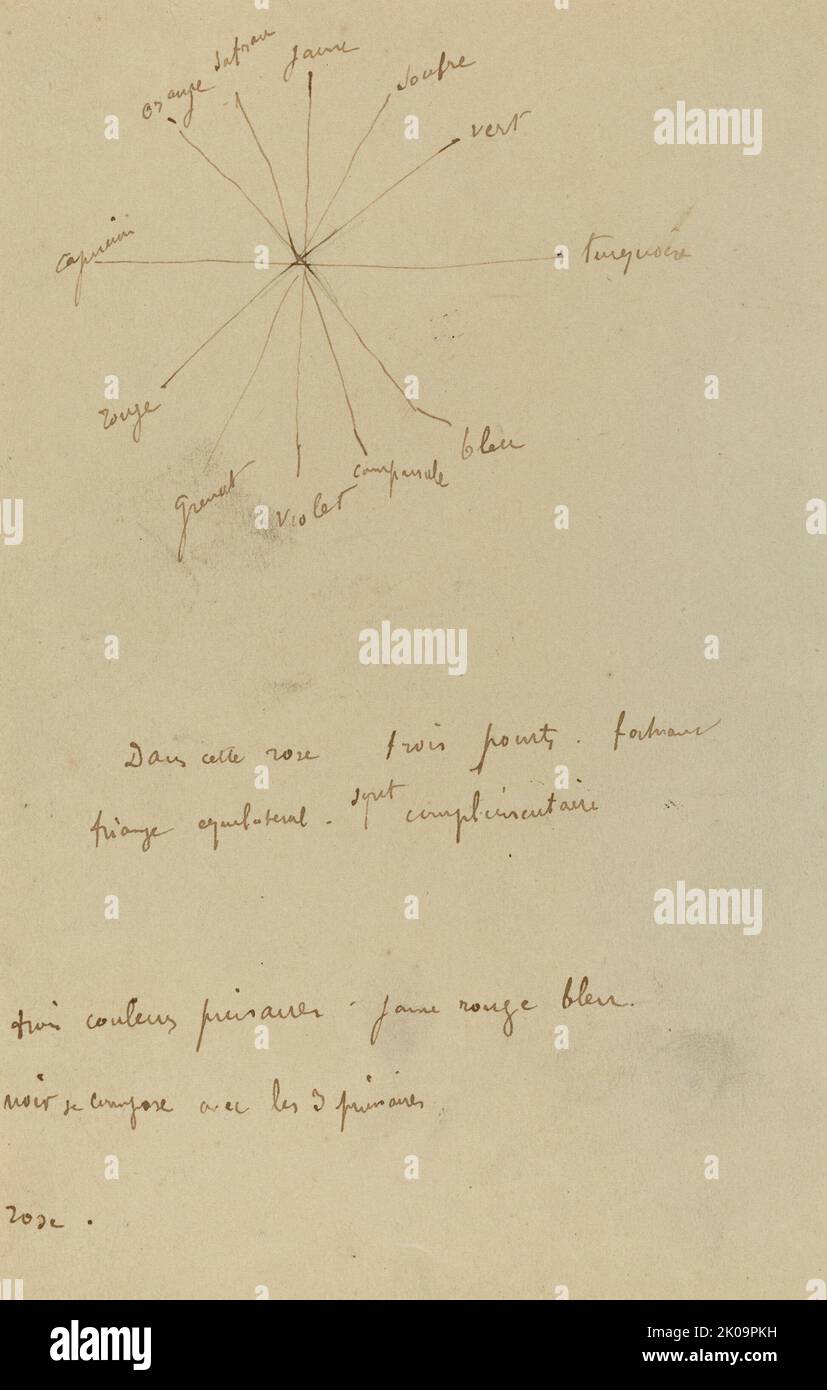 orange safran jaune soufre
vert
capucin turquoise
rouge
grenat violet campanule bleu
Dans cette rose trois points. formant
triange equilateral. sont complémentaire
trois couleurs primaires. jaune rouge bleu.
noir se compose avec les 3 primaires
rose.
a alamy
alamy
Image ID: 2K09PKH
www.alamy.com